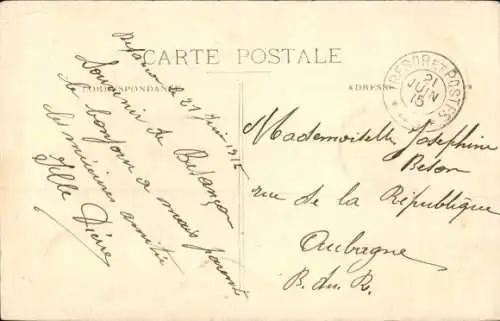 CARTE POSTALE
CORRESPONDANCE
ADRESSE
TRESOR ET POSTES
21
JUIN
15
Besançon le 21 Juin 1915
Souvenir de Besançon
le bonjour a mais parent
des amitié
Pierre
Mademoiselle Josephine
rue de la République
Aubagne
B. du R.